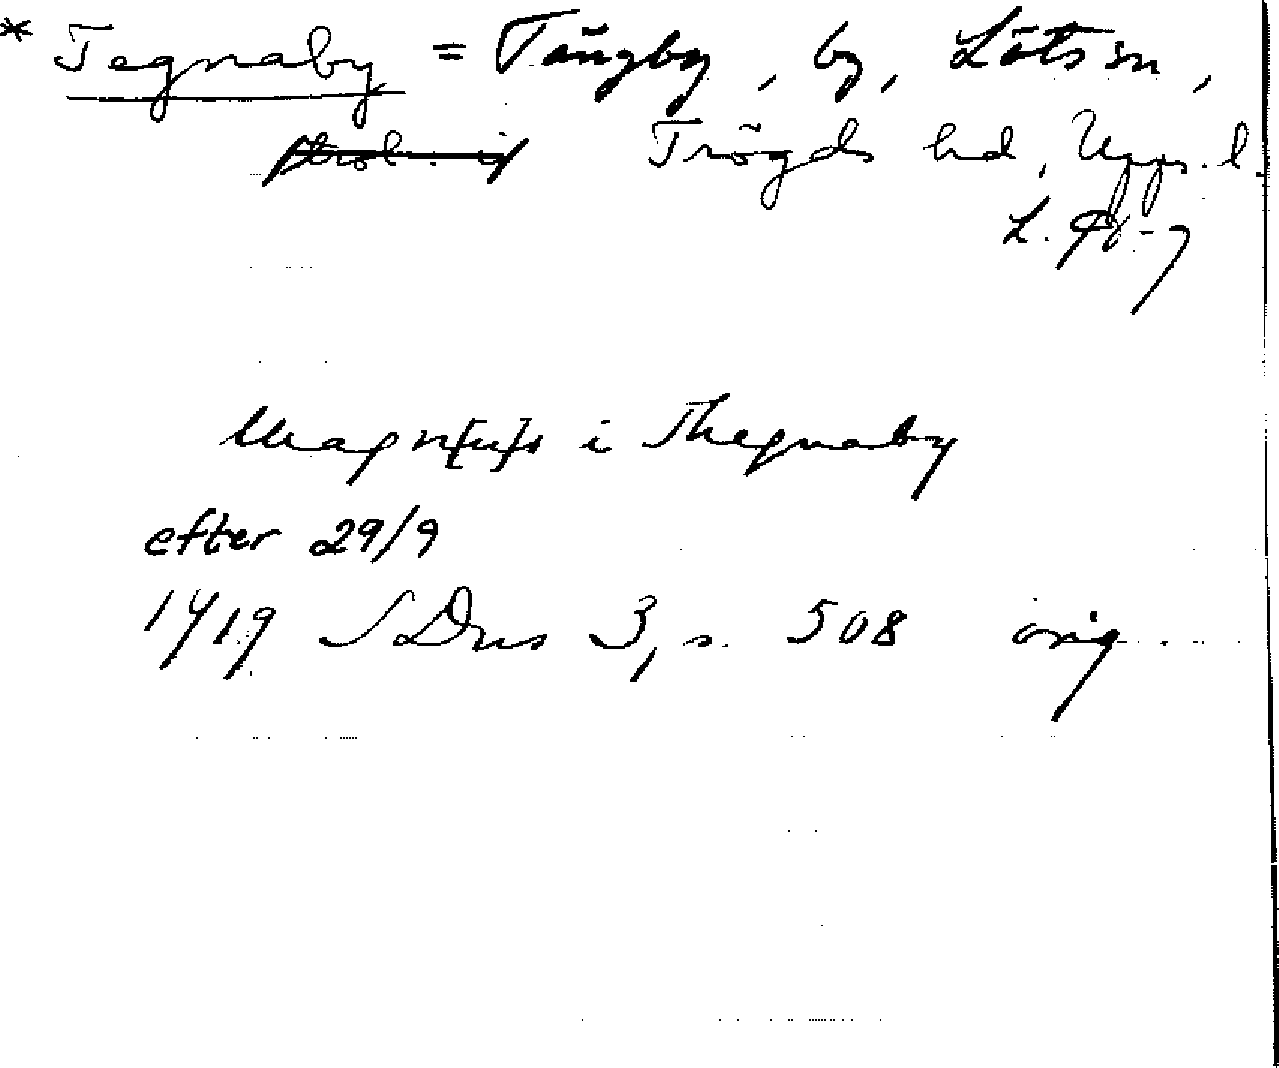 * Tegnaby = Tängby, by, Löts sn,
Trögds hd, Upps. l.
Magn[u]s i Thegnaby
efter 29/9
1419 SDns 3, s. 508 orig